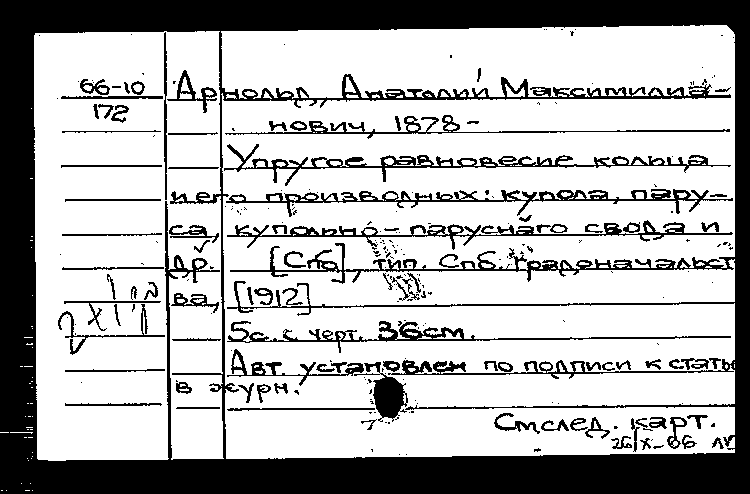 66-10
172
Арнольд, Анатолий Максимилиа-
нович, 1878-
Упругое равновесие кольца
и его производных: купола, пару-
са, купольно-паруснаго свода и
др. [Спб], тип. Спб. градоначальст
ва, [1912].
5с. с черт. 36см.
Авт. установлен по подписи к стать
в журн.
См. след. карт.
26/X-66